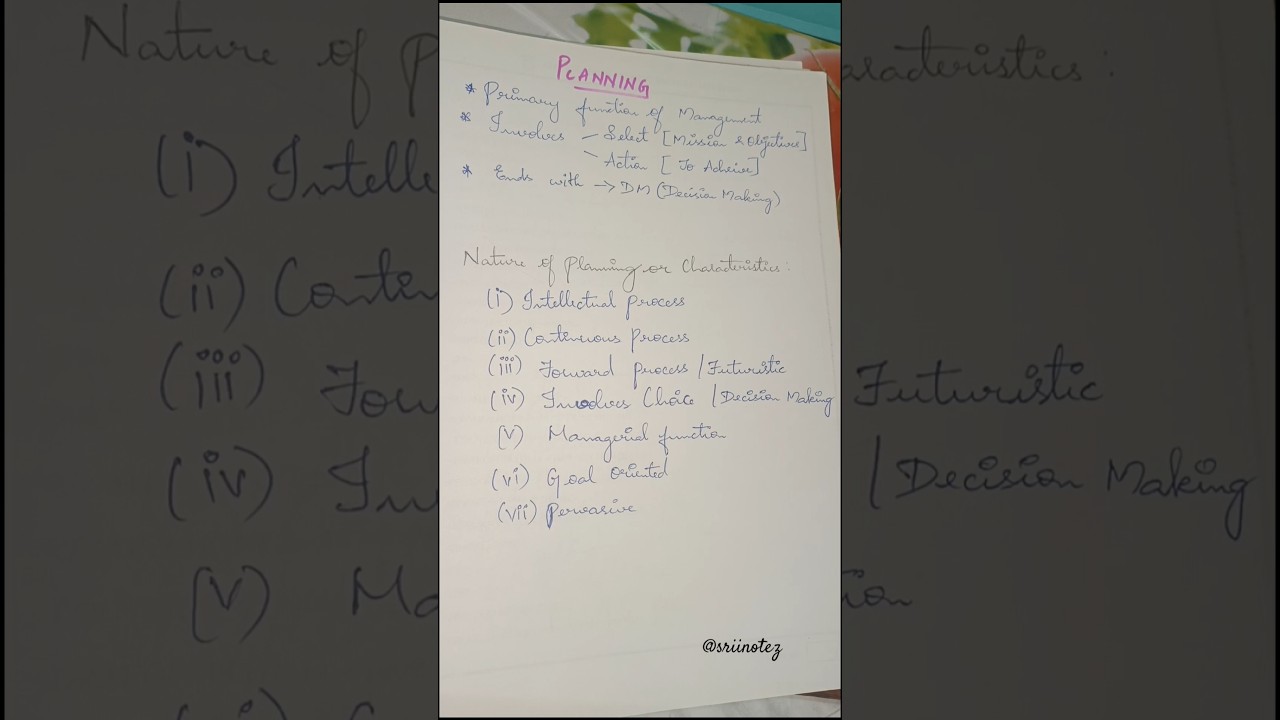 PLANNING
* Primary function of Management
* Involves – Select [Mission & Objectives]
– Action [To Acheive]
* Ends with → DM (Decision Making)
Nature of Planning or Characteristics :
(i) Intellectual process
(ii) Continuous Process
(iii) Forward process / Futuristic
(iv) Involves Choice / Decision Making
(v) Managerial function
(vi) Goal oriented
(vii) Pervasive
@sriinotez